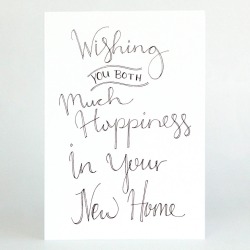 Wishing
YOU BOTH
Much
Happiness
in Your
New Home